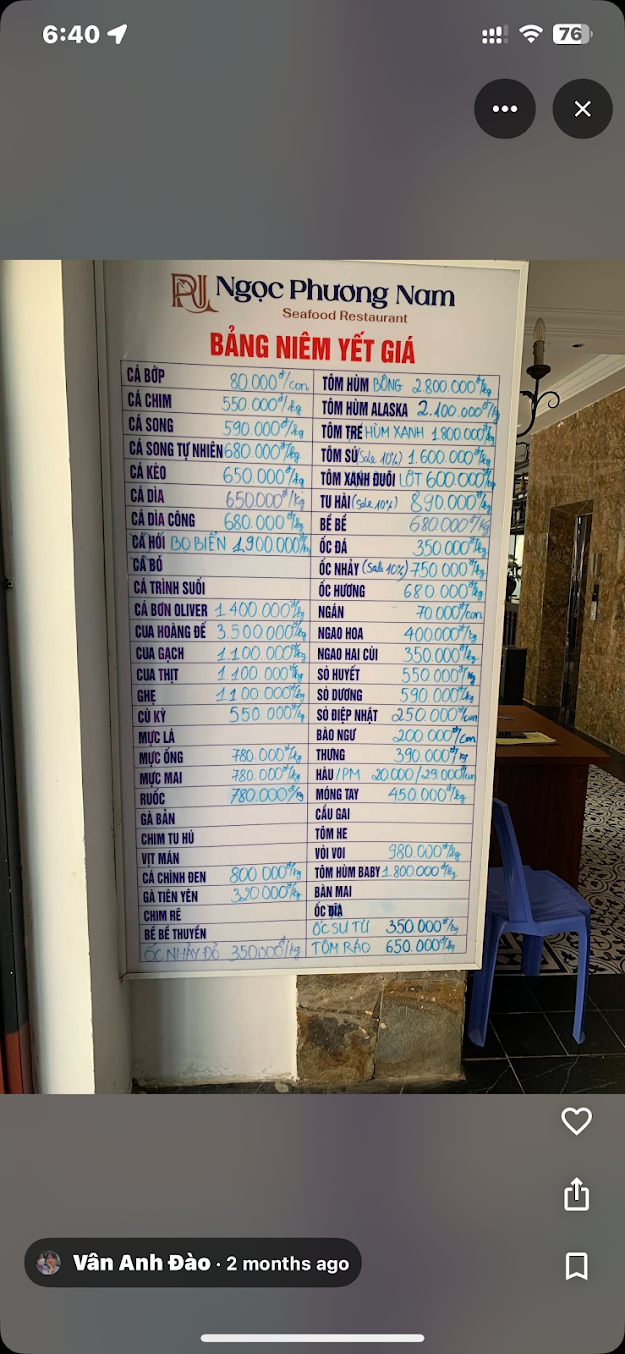 6:40
76
Ngọc Phương Nam
Seafood Restaurant
BẢNG NIÊM YẾT GIÁ
CÁ BỚP 80.000đ/con
CÁ CHIM 550.000đ/kg
CÁ SONG 590.000đ/kg
CÁ SONG TỰ NHIÊN 680.000đ/kg
CÁ KÈO 650.000đ/kg
CÁ DÌA 650.000đ/kg
CÁ DÌA CÔNG 680.000đ/kg
CÁ HỒI BO BIỂN 1.900.000đ/kg
CÁ BÒ
CÁ TRÌNH SUỐI
CÁ BƠN OLIVER 1.400.000đ/kg
CUA HOÀNG ĐẾ 3.500.000đ/kg
CUA GẠCH 1.100.000đ/kg
CUA THỊT 1.100.000đ/kg
GHẸ 1.100.000đ/kg
CÙ KỲ 550.000đ/kg
MỰC LÁ
MỰC ỐNG 780.000đ/kg
MỰC MAI 780.000đ/kg
RUỐC 780.000đ/kg
GÀ BẢN
CHIM TU HÚ
VỊT MÁN
CÁ CHÌNH ĐEN 800.000đ/kg
GÀ TIÊN YÊN 350.000đ/kg
CHIM RẼ
BỀ BỀ THUYỀN
ỐC NHẢY ĐỎ 350.000đ/kg
TÔM HÙM BÔNG 2.800.000đ/kg
TÔM HÙM ALASKA 2.100.000đ/kg
TÔM TRE HÙM XANH 1.800.000đ/kg
TÔM SÚ (Sale 10%) 1.600.000đ/kg
TÔM XANH ĐUÔI LỘT 600.000đ/kg
TU HÀI (Sale 10%) 890.000đ/kg
BỀ BỀ 680.000đ/kg
ỐC ĐÁ 350.000đ/kg
ỐC NHẢY (Sale 10%) 750.000đ/kg
ỐC HƯƠNG 680.000đ/kg
NGÁN 70.000đ/con
NGAO HOA 400000đ/kg
NGAO HAI CÙI 350.000đ/kg
SÒ HUYẾT 550.000đ/kg
SÒ DƯƠNG 590.000đ/kg
SÒ ĐIỆP NHẬT 250.000đ/con
BÀO NGƯ 200.000đ/con
THƯNG 390.000đ/kg
HÀU /PM 20.000/29.000đ/con
MÓNG TAY 450.000đ/kg
CẦU GAI
TÔM HE
VÒI VOI 980.000đ/kg
TÔM HÙM BABY 1.800.000đ/kg
BÀN MAI
ỐC ĐĨA
ỐC SƯ TỬ 350.000đ/kg
TÔM RẢO 650.000đ/kg
Vân Anh Đào · 2 months ago